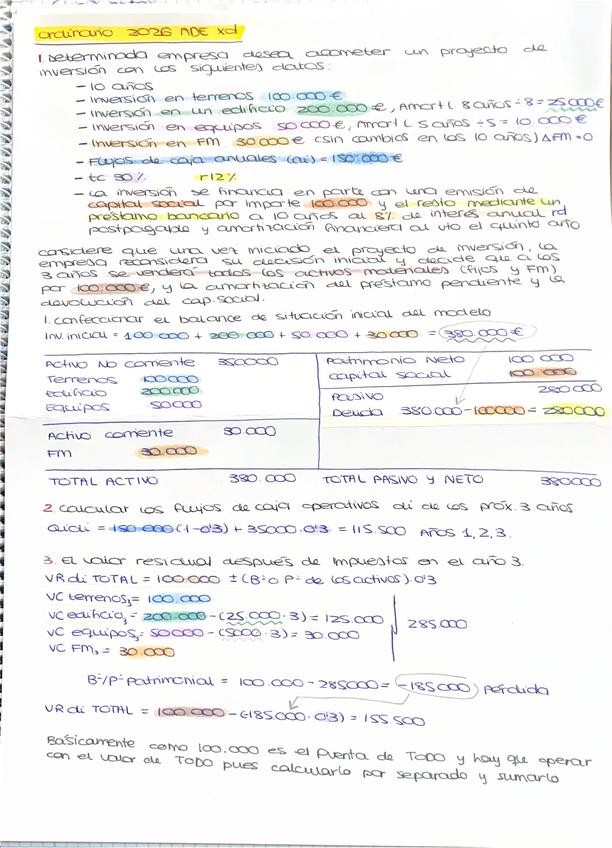 ordinario 2026 ADE xd
1. Determinada empresa desea acometer un proyecto de
inversión con los siguientes datos:
- 10 años
- Inversión en terrenos 100.000€
- Inversión en un edificio 200.000€, Amort L 8 años ÷8 = 25000€
- Inversión en equipos 50.000€, Amort L 5 años ÷5 = 10 000€
- Inversión en FM 30.000€ (sin cambios en los 10 años) ΔFM=0
- Flujos de caja anuales (ai) = 150.000€
- tc 30% r12%
- La inversión se financia en parte con una emisión de
capital social por importe 100.000 y el resto mediante un
préstamo bancario a 10 años al 8% de interés anual rd
postpagable y amortización financiera al vto el quinto año
considere que una vez iniciado el proyecto de inversión, la
empresa reconsidera su decisión inicial y decide que a los
3 años se venderá todos los activos materiales (fijos y FM)
por 100.000€, y la amortización del préstamo pendiente y la
devolución del cap. social.
1. confeccionar el balance de situación inicial del modelo
Inv. inicial = 100 000 + 200 000 + 50 000 + 30 000 = 380.000€
Activo No corriente 350000 Patrimonio Neto 100 000
Terrenos 100000 capital social 100.000
Edificio 200000 Pasivo 280000
Equipos 50000 Deuda 380000-100000 = 280000
Activo corriente 30.000
FM 30.000
TOTAL ACTIVO 380.000 TOTAL PASIVO Y NETO 380000
2. calcular los flujos de caja operativos di de los próx. 3 años
Qidi = 150.000(1-0'3) + 35000·0'3 = 115.500 AÑOS 1,2,3.
3. El valor residual después de impuestos en el año 3.
VR di TOTAL = 100.000 ± (Bº o Pª de los activos).0'3
VC terrenos3 = 100.000
VC edificio3 = 200.000 - (25.000·3) = 125.000
VC equipos3 = 50000 - (5000·3) = 30.000 285000
VC FM3 = 30.000
Bº/Pª patrimonial = 100.000 - 285000 = -185000 pérdida
VR di TOTAL = 100.000 - (-185.000·0'3) = 155.500
Básicamente como 100.000 es el pventa de TODO y hay que operar
con el valor de TODO pues calcularlo por separado y sumarlo